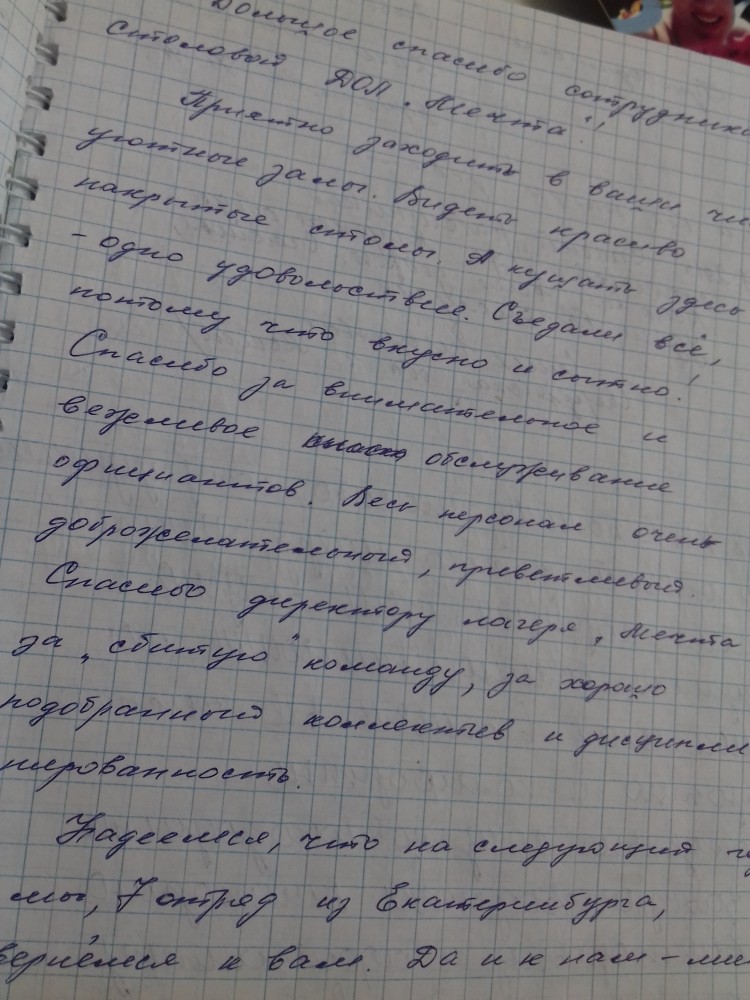 Большое спасибо сотрудника
столовой ДОЛ „Мечта"!
Приятно заходить в ваши чи
уютные залы. Видеть красиво
накрытые столы. А кушать здесь
- одно удовольствие. Съедали всё,
потому что вкусно и сытно!
Спасибо за внимательное и
вежливое обслуживание
официантов. Весь персонал очень
доброжелательный, приветливый.
Спасибо директору лагеря „Мечта
за „сбитую" команду, за хорошо
подобранный коллектив и дисципли
нированность.
Надеемся, что на следующий г
мы, 7 отряд из Екатеринбурга,
вернёмся к вам. Да и к нам - ми